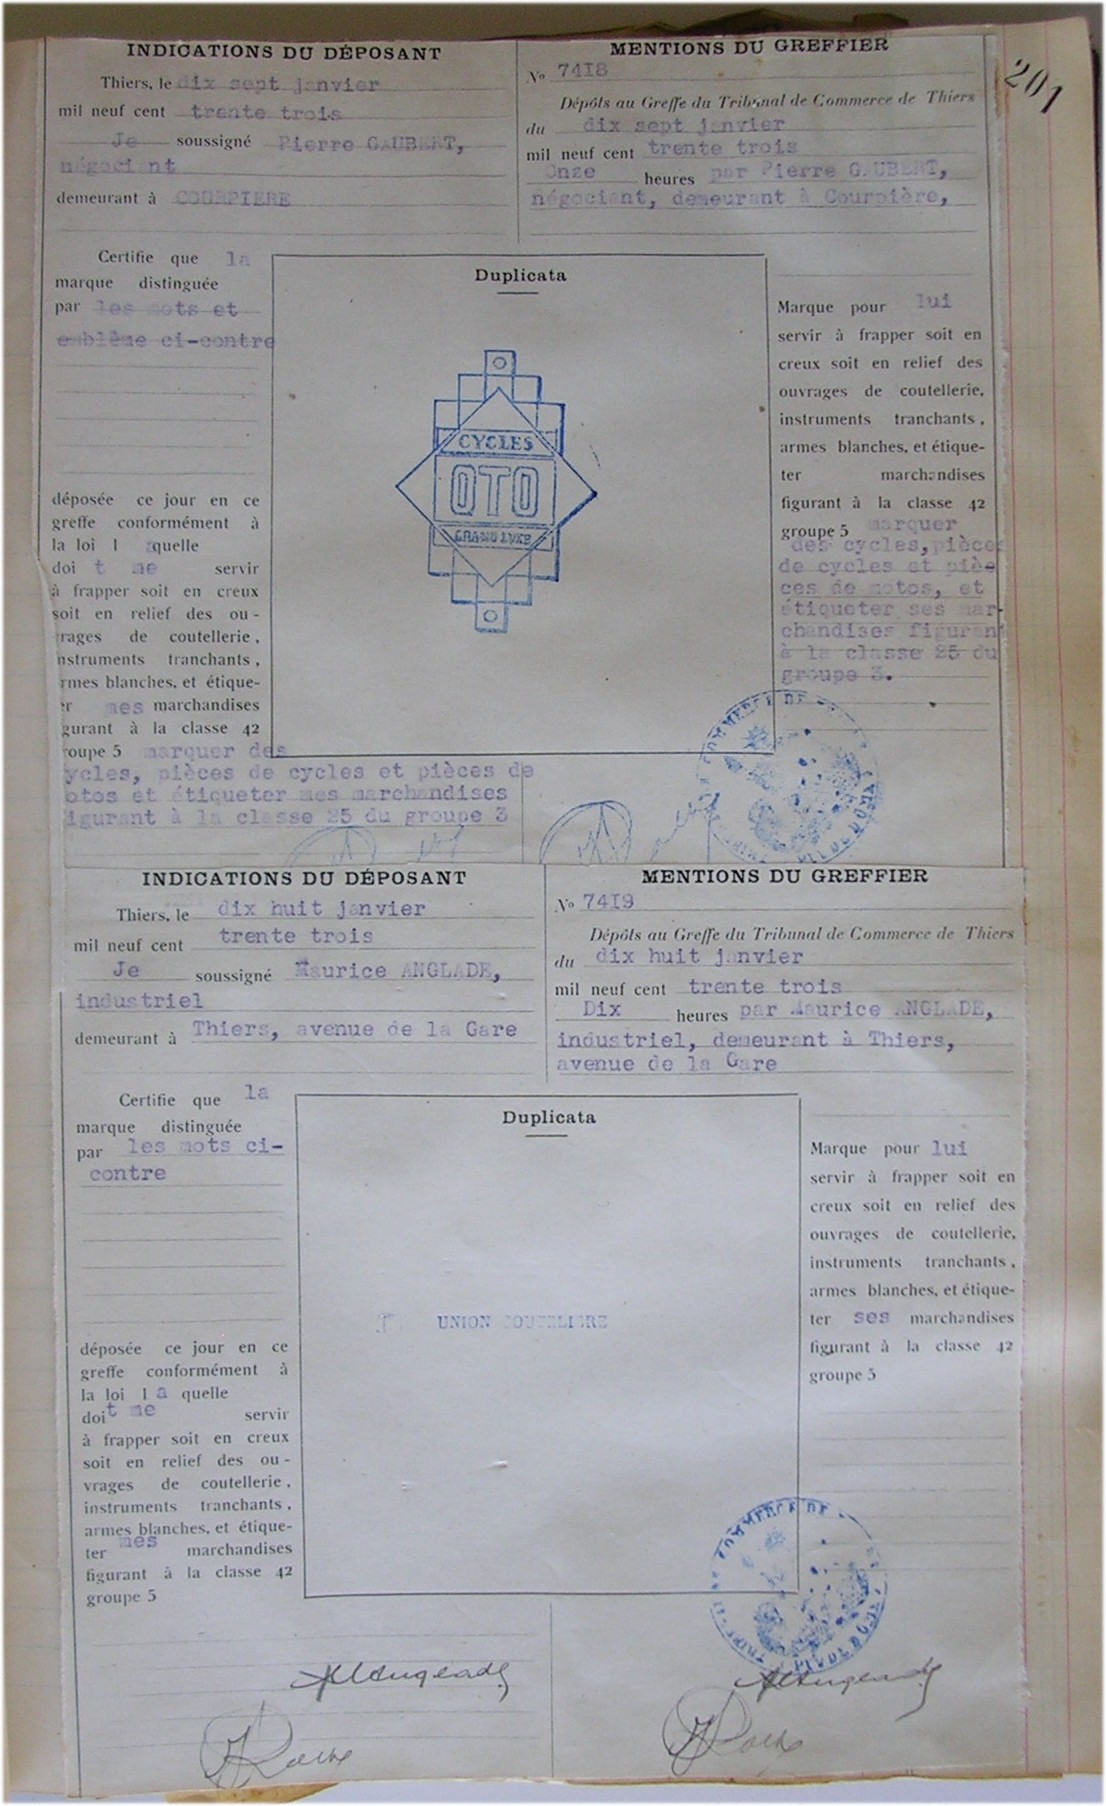 201
INDICATIONS DU DÉPOSANT
Thiers, le dix sept janvier
mil neuf cent trente trois
Je soussigné Pierre GAUBERT,
négociant
demeurant à COURPIERE
MENTIONS DU GREFFIER
No 7418
Dépôts au Greffe du Tribunal de Commerce de Thiers
du dix sept janvier
mil neuf cent trente trois
Onze heures par Pierre GAUBERT,
négociant, demeurant à Courpière,
Certifie que la
marque distinguée
par les mots et
emblême ci-contre
déposée ce jour en ce
greffe conformément à
la loi l aquelle
doi t me servir
à frapper soit en creux
soit en relief des ou-
rages de coutellerie,
nstruments tranchants,
rmes blanches, et étique-
er mes marchandises
gurant à la classe 42
roupe 5 marquer des
ycles, pièces de cycles et pièces de
otos et étiqueter mes marchandises
igurant à la classe 25 du groupe 3
Duplicata
CYCLES
OTO
GRAND LUXE
Marque pour lui
servir à frapper soit en
creux soit en relief des
ouvrages de coutellerie,
instruments tranchants,
armes blanches, et étique-
ter marchandises
figurant à la classe 42
groupe 5 marquer
des cycles, pièces
de cycles et piè-
ces de motos, et
étiqueter ses mar-
chandises figurant
à la classe 25 du
groupe 3.
COMMERCE DE
PUY DE DOME
INDICATIONS DU DÉPOSANT
Thiers, le dix huit janvier
mil neuf cent trente trois
Je soussigné Maurice ANGLADE,
industriel
demeurant à Thiers, avenue de la Gare
MENTIONS DU GREFFIER
No 7419
Dépôts au Greffe du Tribunal de Commerce de Thiers
du dix huit janvier
mil neuf cent trente trois
Dix heures par Maurice ANGLADE,
industriel, demeurant à Thiers,
avenue de la Gare
Certifie que la
marque distinguée
par les mots ci-
contre
déposée ce jour en ce
greffe conformément à
la loi l a quelle
doit me servir
à frapper soit en creux
soit en relief des ou-
vrages de coutellerie,
instruments tranchants,
armes blanches, et étique-
ter mes marchandises
figurant à la classe 42
groupe 5
Duplicata
UNION COUTELIERE
Marque pour lui
servir à frapper soit en
creux soit en relief des
ouvrages de coutellerie,
instruments tranchants,
armes blanches, et étique-
ter ses marchandises
figurant à la classe 42
groupe 5
COMMERCE DE
PUY DE DOME